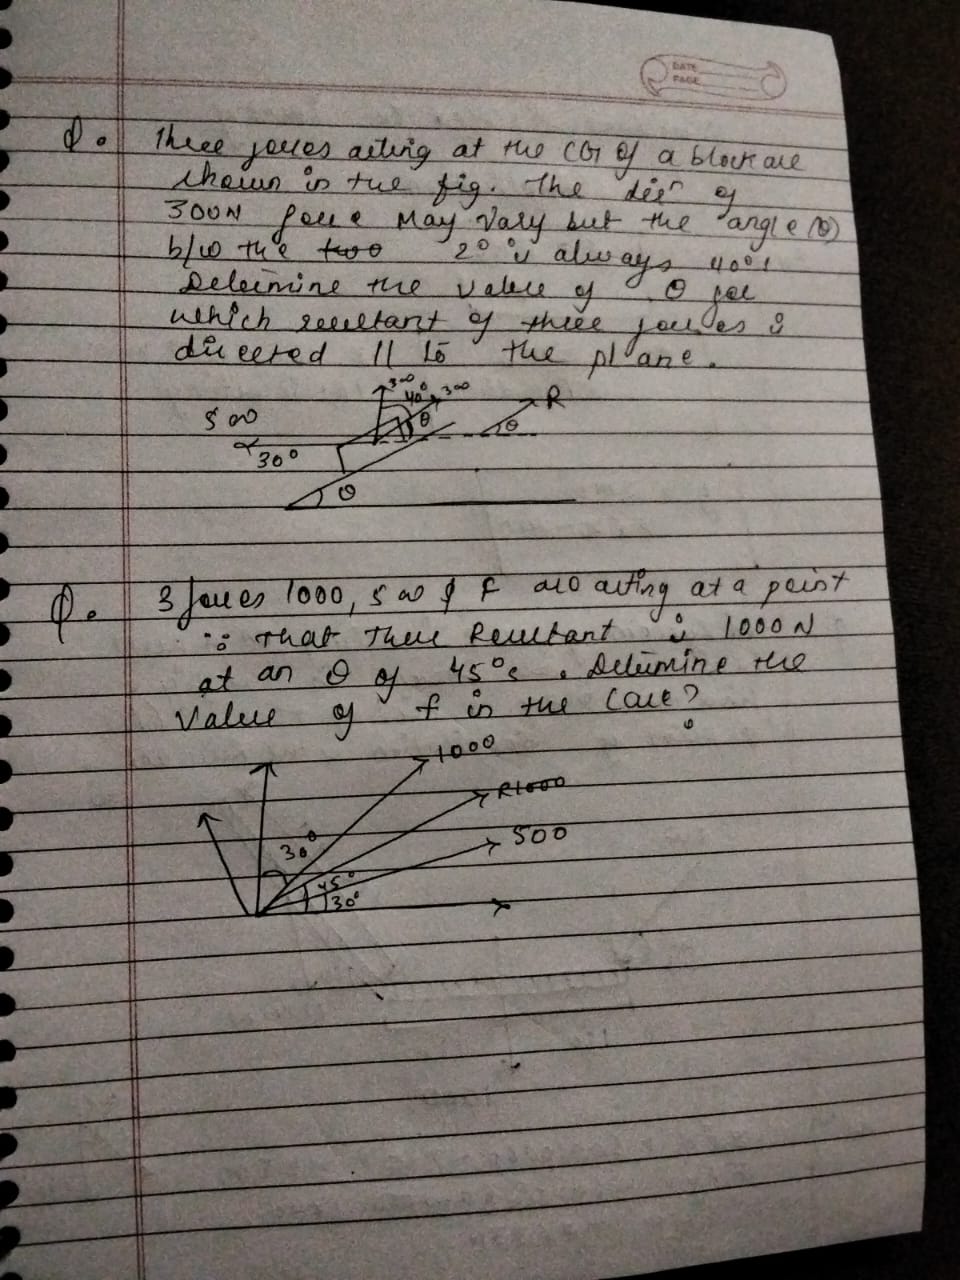 DATE
PAGE
Q. Three forces acting at the CG of a block are
shown in the fig. The dirⁿ of
300N force may vary but the angle (θ)
b/w the two 2° is always 40°.
Determine the value of θ for
which resultant of three forces is
directed || to the plane.
300
40°
300
R
500
θ
θ
30°
θ
Q. 3 forces 1000, 500 & F are acting at a point
that there Resultant is 1000 N
at an θ of 45°. Determine the
Value of f in the Case?
1000
R1000
500
30°
45°
30°